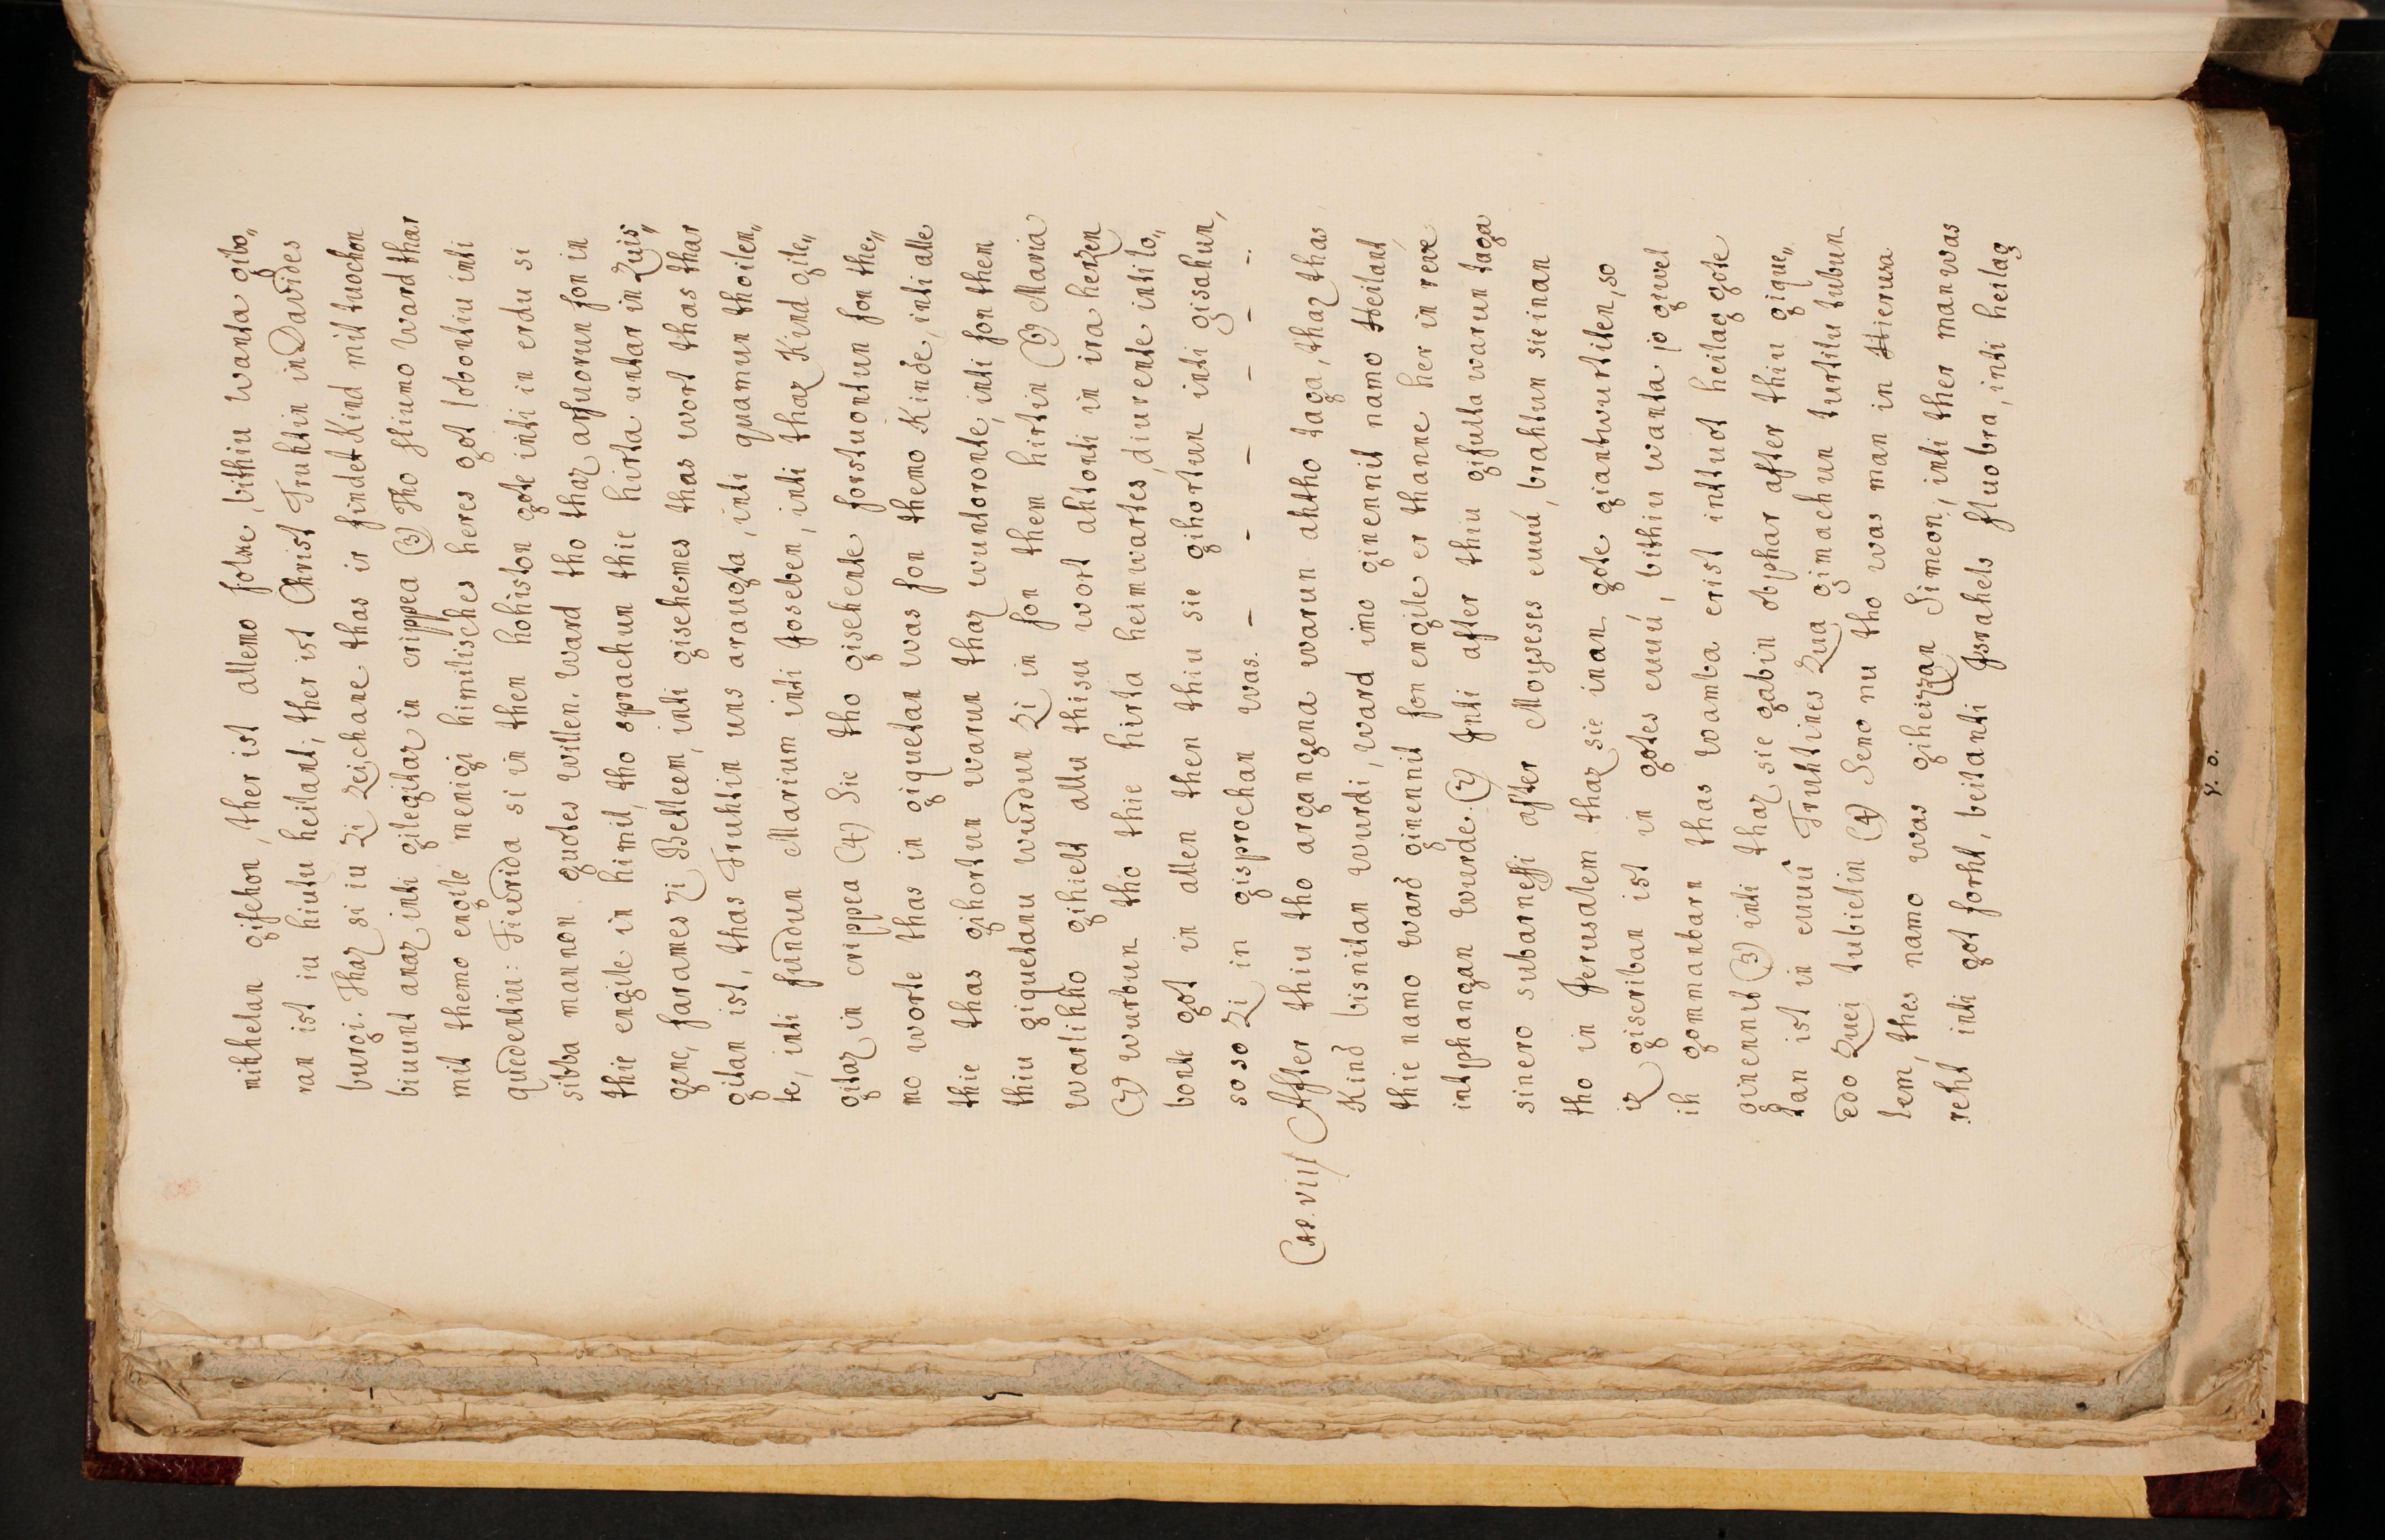 mihhelan gifehon, ther ist allemo folke, bithiu wanta gibo„
ran ist iu hiutu heilant, ther ist Christ Truhtin in Davides
burgi. Thaz si iu zi zeichane thas ir findet Kind mit tuochon
biuunt anaz, inti gilegitaz in crippea (3) Tho sliumo ward thar
mit themo engile menigi himilisches heres got lobontiu inti
quedentiu: Tiurida si in then hohiston gote inti in erdu si
sibba mannon guotes willen. Ward tho thaz arfuorun fon in
thie engile in himil, tho sprachun thie hirta untar in zuis„
gene, farames zi Betleem, inti gisehemes thas wort thas thar
gitan ist, thas Truhtin uns araugta, inti quamun thoilen„
te, inti fundun Marium inti Joseben, inti thaz Kind gile„
gitaz in crippea (4) Sie tho gisehente forstuontun fon the„
mo worte thas in giquetan was fon themo Kinde, inti alle
thie thas gihortun warun thaz wuntoronte, inti fon them
thiu giquetanu wurdun zi in fon them hirtin (5) Maria
warlihho gihielt allu thisu wort ahtonti in ira herzen
(7) wurbun tho thie hirta heimwartes, diurente inti lo„
bonte got in allen then thiu sie gihortun inti gisahun,
soso zi in gisprochan was. – – – – – – –
Cap. VII/ After thiu tho argangena warun ahtho taga, thaz thas
Kind bisnitan wurdi, ward imo ginemnit namo Heilant,
thie namo ward ginennit fon engile er thanne her in reve
intphangan wurde. (2) Inti after thiu gifulta warun taga
sinero subarnessi after Moyseses euuú, brahtun sie inan
tho in Jerusalem thaz sie inan gote giantwurtiten, so
iz giscriban ist in gotes euuú, bithiu wanta jo giwel
ih gommanbarn thas wamba erist inttuot heilag gote
ginennit (3) inti thaz sie gabin obphar after thiu gique„
tan ist in euuú Truhtines zua gimachun turtilu tubun
edo zuei tubiclin (4) Seno nu tho was man in Hierusa
lem, thes namo was giheizzan Simeon, inti ther man was
reht inti got forht, beitanti Israhels fluobra, inti heilag